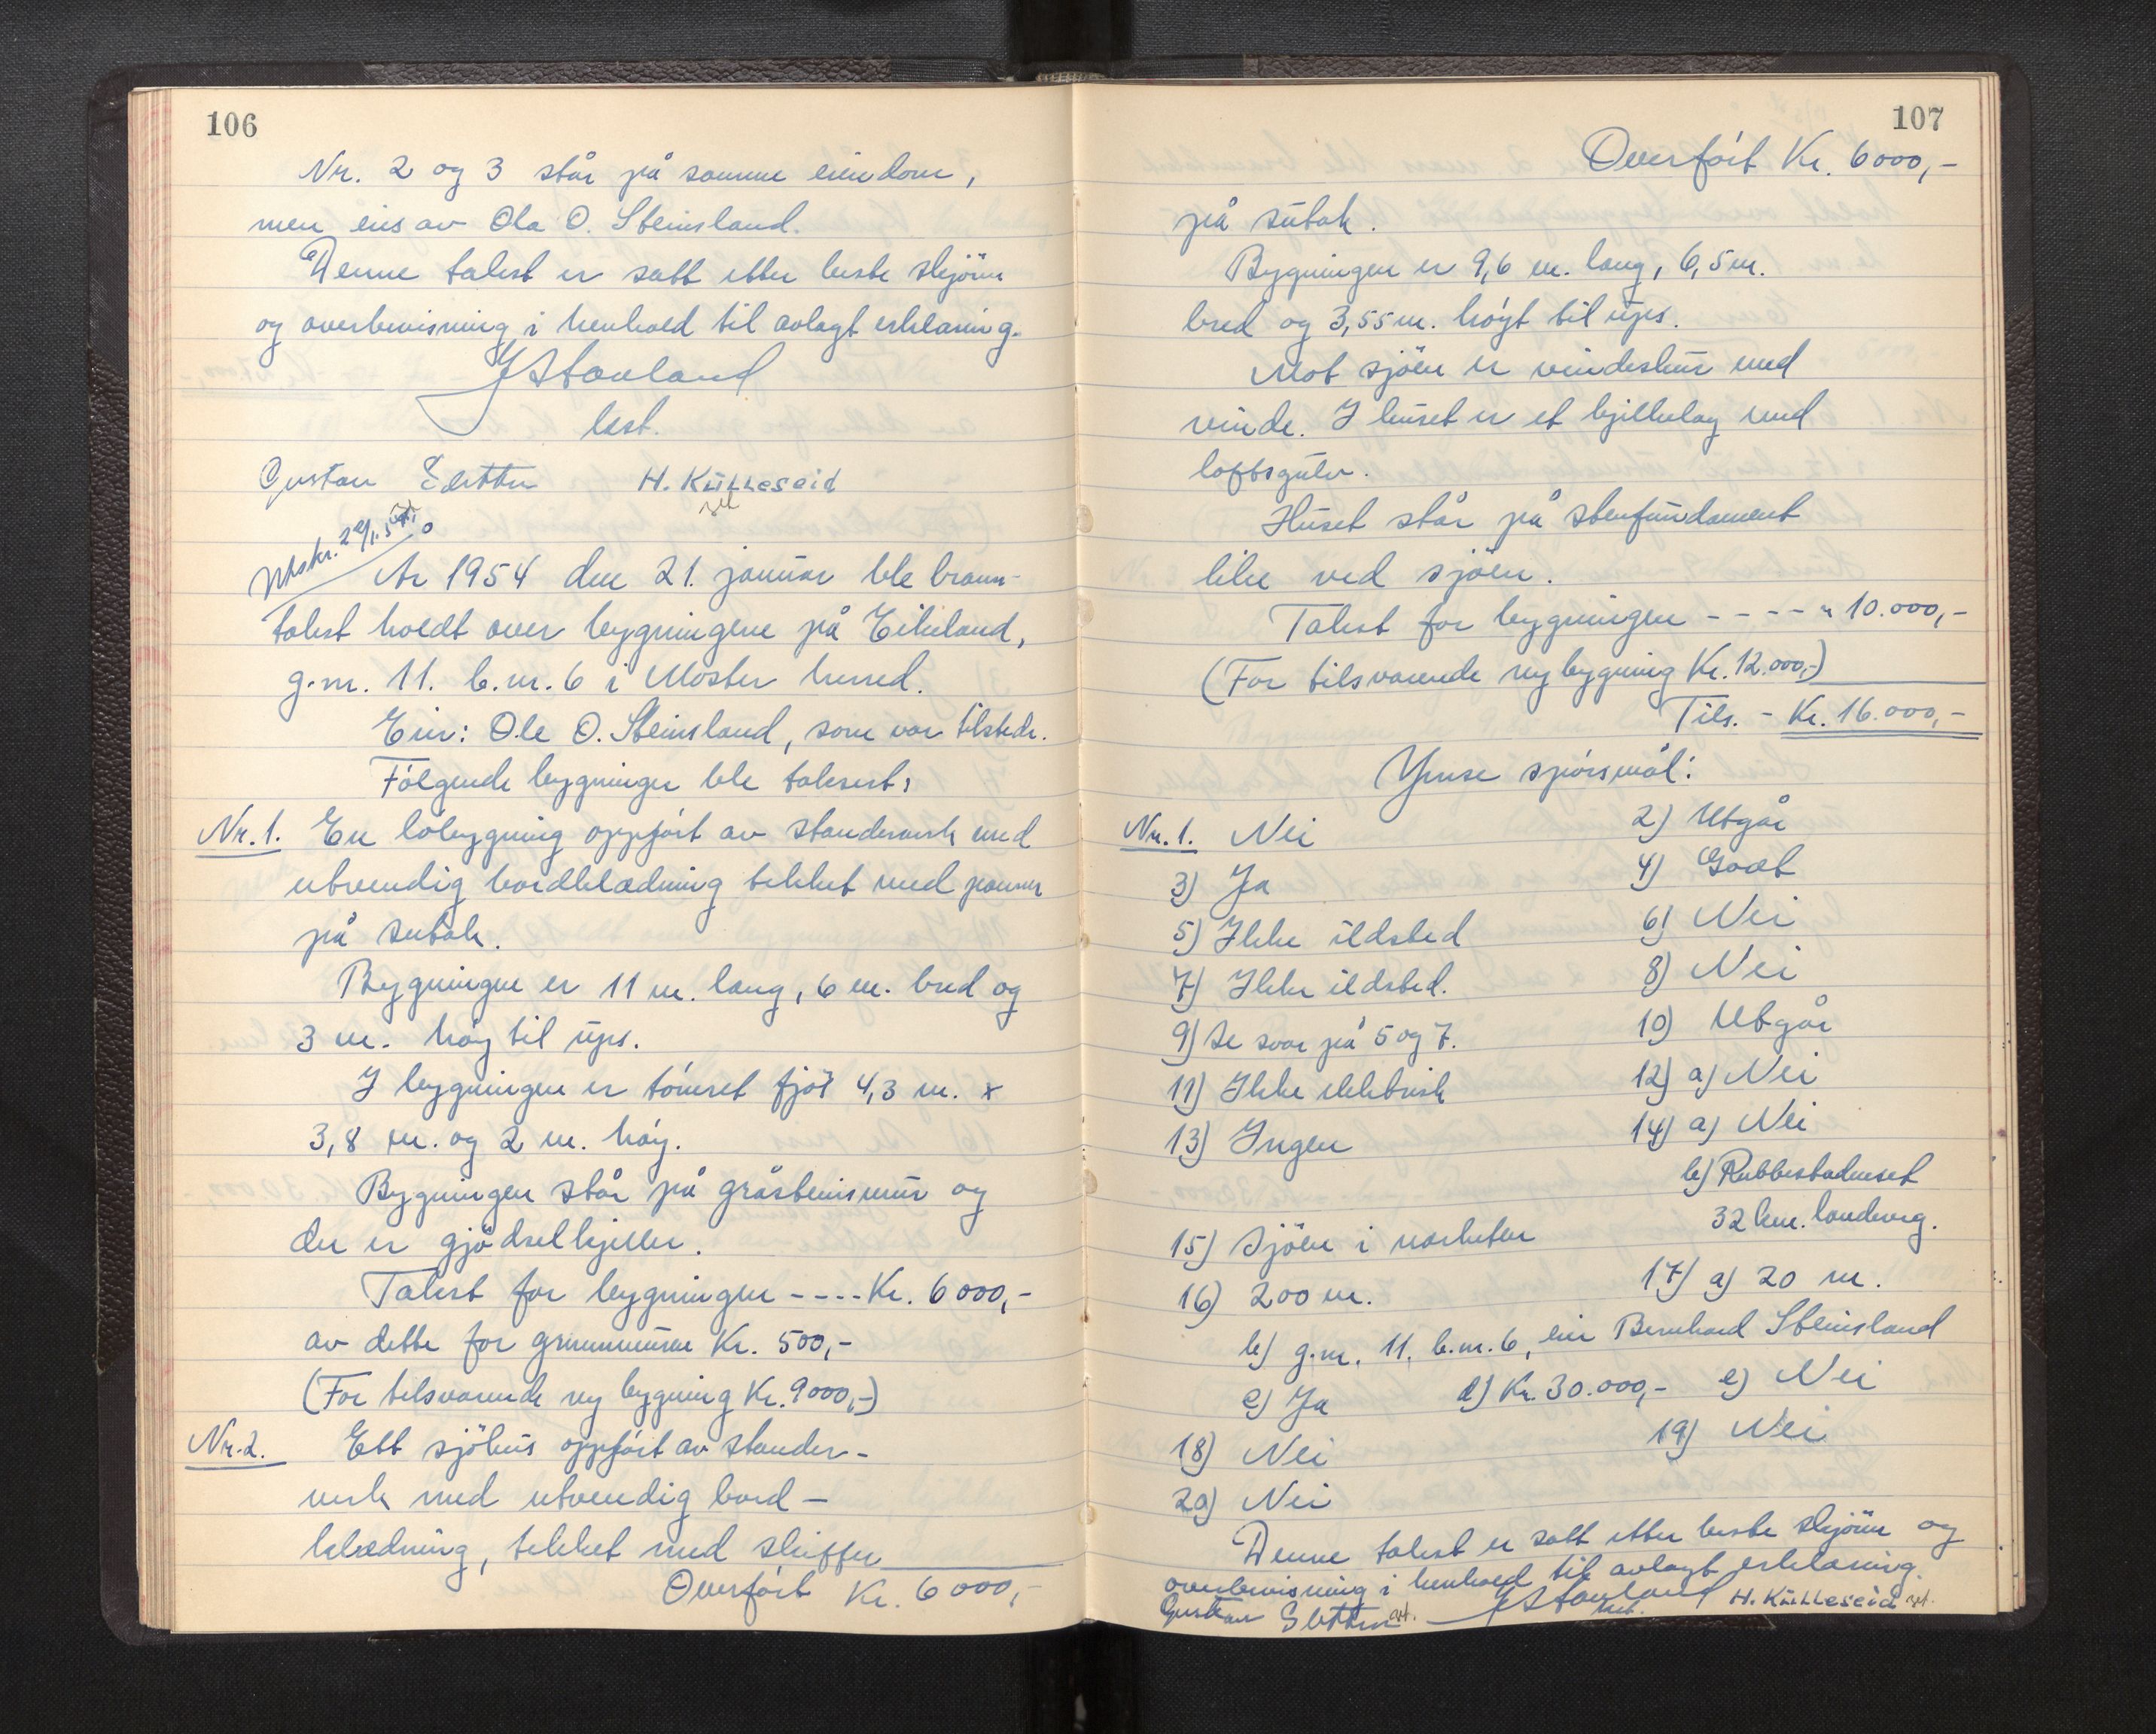 106
Nr. 2 og 3 står på samme eiendom,
men eies av Ola O. Steinsland.
Denne takst er satt etter beste skjönn
og overbevisning i henhold til avlagt erklæring.
JStavland
lest.
Gustav H. Külleseid
Utskr. 22/1.54.
År 1954 den 21. januar ble brann-
takst holdt over bygningene på Eikeland,
g.nr. 11. b.nr. 6 i Moster herred.
Eier: Ole O. Steinsland, som var tilstede.
Fölgende bygninger ble taksert:
Nr. 1. En löbygning oppfört av standerverk med
utvendig bordklædning tekket med panner
på sutak.
Bygningen er 11 m. lang, 6 m. bred og
3 m. höy til ups.
I bygningen er tömret fjös 4,3 m. x
3,8 m. og 2 m. höy.
Bygningen står på gråsteinsmur og
der er gjödselkjeller.
Takst for bygningen ---- Kr. 6000,-
av dette for grunnmuren Kr. 500,-
(For tilsvarende ny bygning Kr. 9000,-)
Nr. 2. Ett sjöhus oppfört av stander-
verk med utvendig bord-
klædning, tekket med skiffer
Overfört Kr. 6000,-
107
Overfört Kr. 6000,-
på sutak.
Bygningen er 9,6 m. lang, 6,5 m.
bred og 3,55 m. höyt til ups.
Mot sjöen er vindeskur med
vinde. I huset er et bjelkelag med
loftsgulv.
Huset står på stenfundament
like ved sjöen.
Takst for bygningen ---- " 10.000,-
(For tilsvarende ny bygning Kr. 12.000,-)
Tils. - Kr. 16.000,-
Ymse spörsmål:
Nr. 1. Nei 2) Utgår
3) Ja 4) Godt
5) Ikke ildsted 6) Nei
7) Ikke ildsted. 8) Nei
9) Se svar på 5 og 7. 10) Utgår
11) Ikke elektrisk 12) a) Nei
13) Ingen 14) a) Nei
b) Rubbestadneset
32 km. landveg.
15) Sjöen i nærheten
16) 200 m. 17) a) 20 m.
b) g.nr. 11. b.nr. 6, eier Bernhard Steinsland
c) Ja d) Kr. 30.000,- e) Nei
18) Nei 19) Nei
20) Nei
Denne takst er satt etter beste skjönn og
overbevisning i henhold til avlagt erklæring.
Gustav Sletten JStavland H. Külleseid
lest.